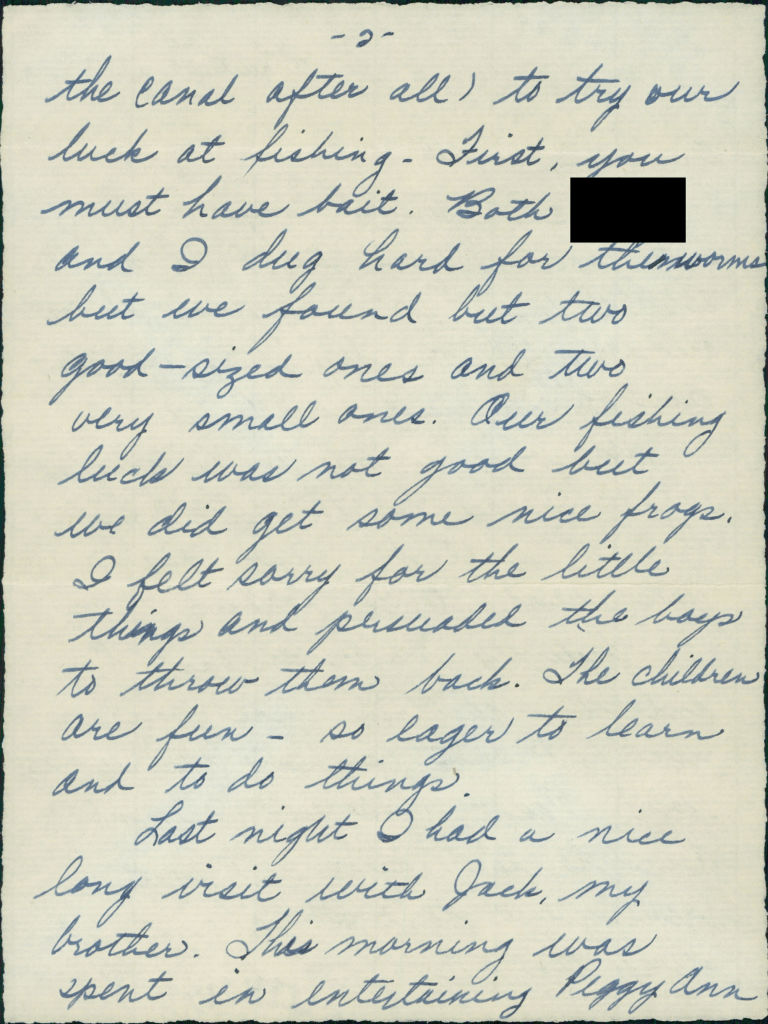 -2-
the canal after all) to try our
luck at fishing - First, you
must have bait. Both
and I dug hard for worms
but we found but two
good-sized ones and two
very small ones. Our fishing
luck was not good but
we did get some nice frogs.
I felt sorry for the little
things and persuaded the boys
to throw them back. The children
are fun - so eager to learn
and to do things.
Last night I had a nice
long visit with Jack, my
brother. This morning was
spent in entertaining Peggy Ann